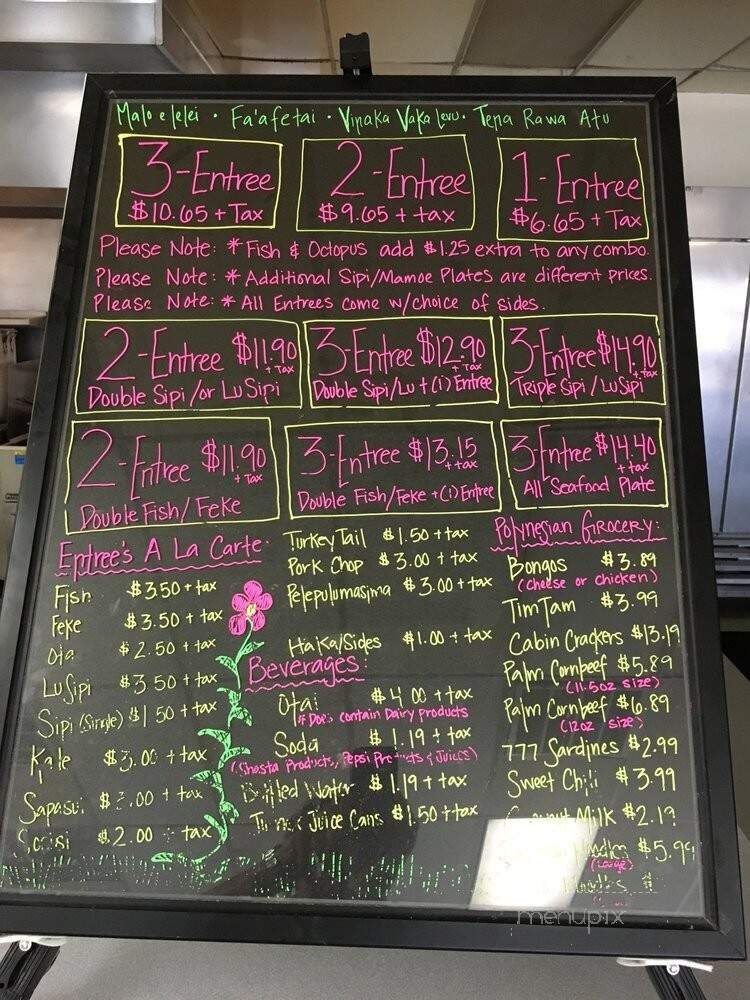 Malo e lelei · Fa'afetai · Vinaka Vaka levu · Tena Rawa Atu
3-Entree
$10.65 + Tax
2-Entree
$9.65 + tax
1-Entree
$6.65 + Tax
Please Note: * Fish & Octopus add $1.25 extra to any combo.
Please Note: * Additional Sipi/Mamoe Plates are different prices.
Please Note: * All Entrees come w/choice of sides.
2-Entree $11.90 + Tax
Double Sipi/or LuSipi
3-Entree $12.90 + Tax
Double Sipi/Lu + (1) Entree
3-Entree $14.90 + Tax
Triple Sipi/LuSipi
2-Entree $11.90 + Tax
Double Fish/Feke
3-Entree $13.15 + tax
Double Fish/Feke + (1) Entree
3-Entree $14.40 + tax
All Seafood Plate
Entree's A La Carte
Fish $3.50 + tax
Feke $3.50 + tax
Ota $2.50 + tax
LuSipi $3.50 + tax
Sipi (Single) $1.50 + tax
Kale $3.00 + tax
Sapasui .00 + tax
$2.00 + tax
Turkey Tail $1.50 + tax
Pork Chop $3.00 + tax
Pelepulumasima $3.00 + tax
Haka/Sides $1.00 + tax
Beverages:
Otai $4.00 + tax
* Does contain Dairy products
Soda $1.19 + tax
(Shasta Products, Pepsi Products & Juices)
Bottled Water $1.19 + tax
Juice Cans $1.50 + tax
Polynesian Grocery:
Bongos $3.89
(cheese or chicken)
TimTam $3.99
Cabin Crackers $13.19
Palm Cornbeef $5.89
(11.5oz size)
Palm Cornbeef $6.89
(12oz size)
777 Sardines $2.99
Sweet Chili $3.99
Milk $2.19
$5.99
(Large)
$
menupix